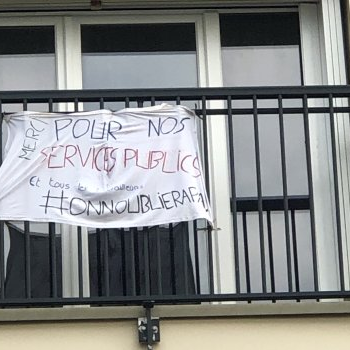 MERCI POUR NOS
SERVICES PUBLICS
Et tous les travailleurs
#ONNOUBLIERAPAS